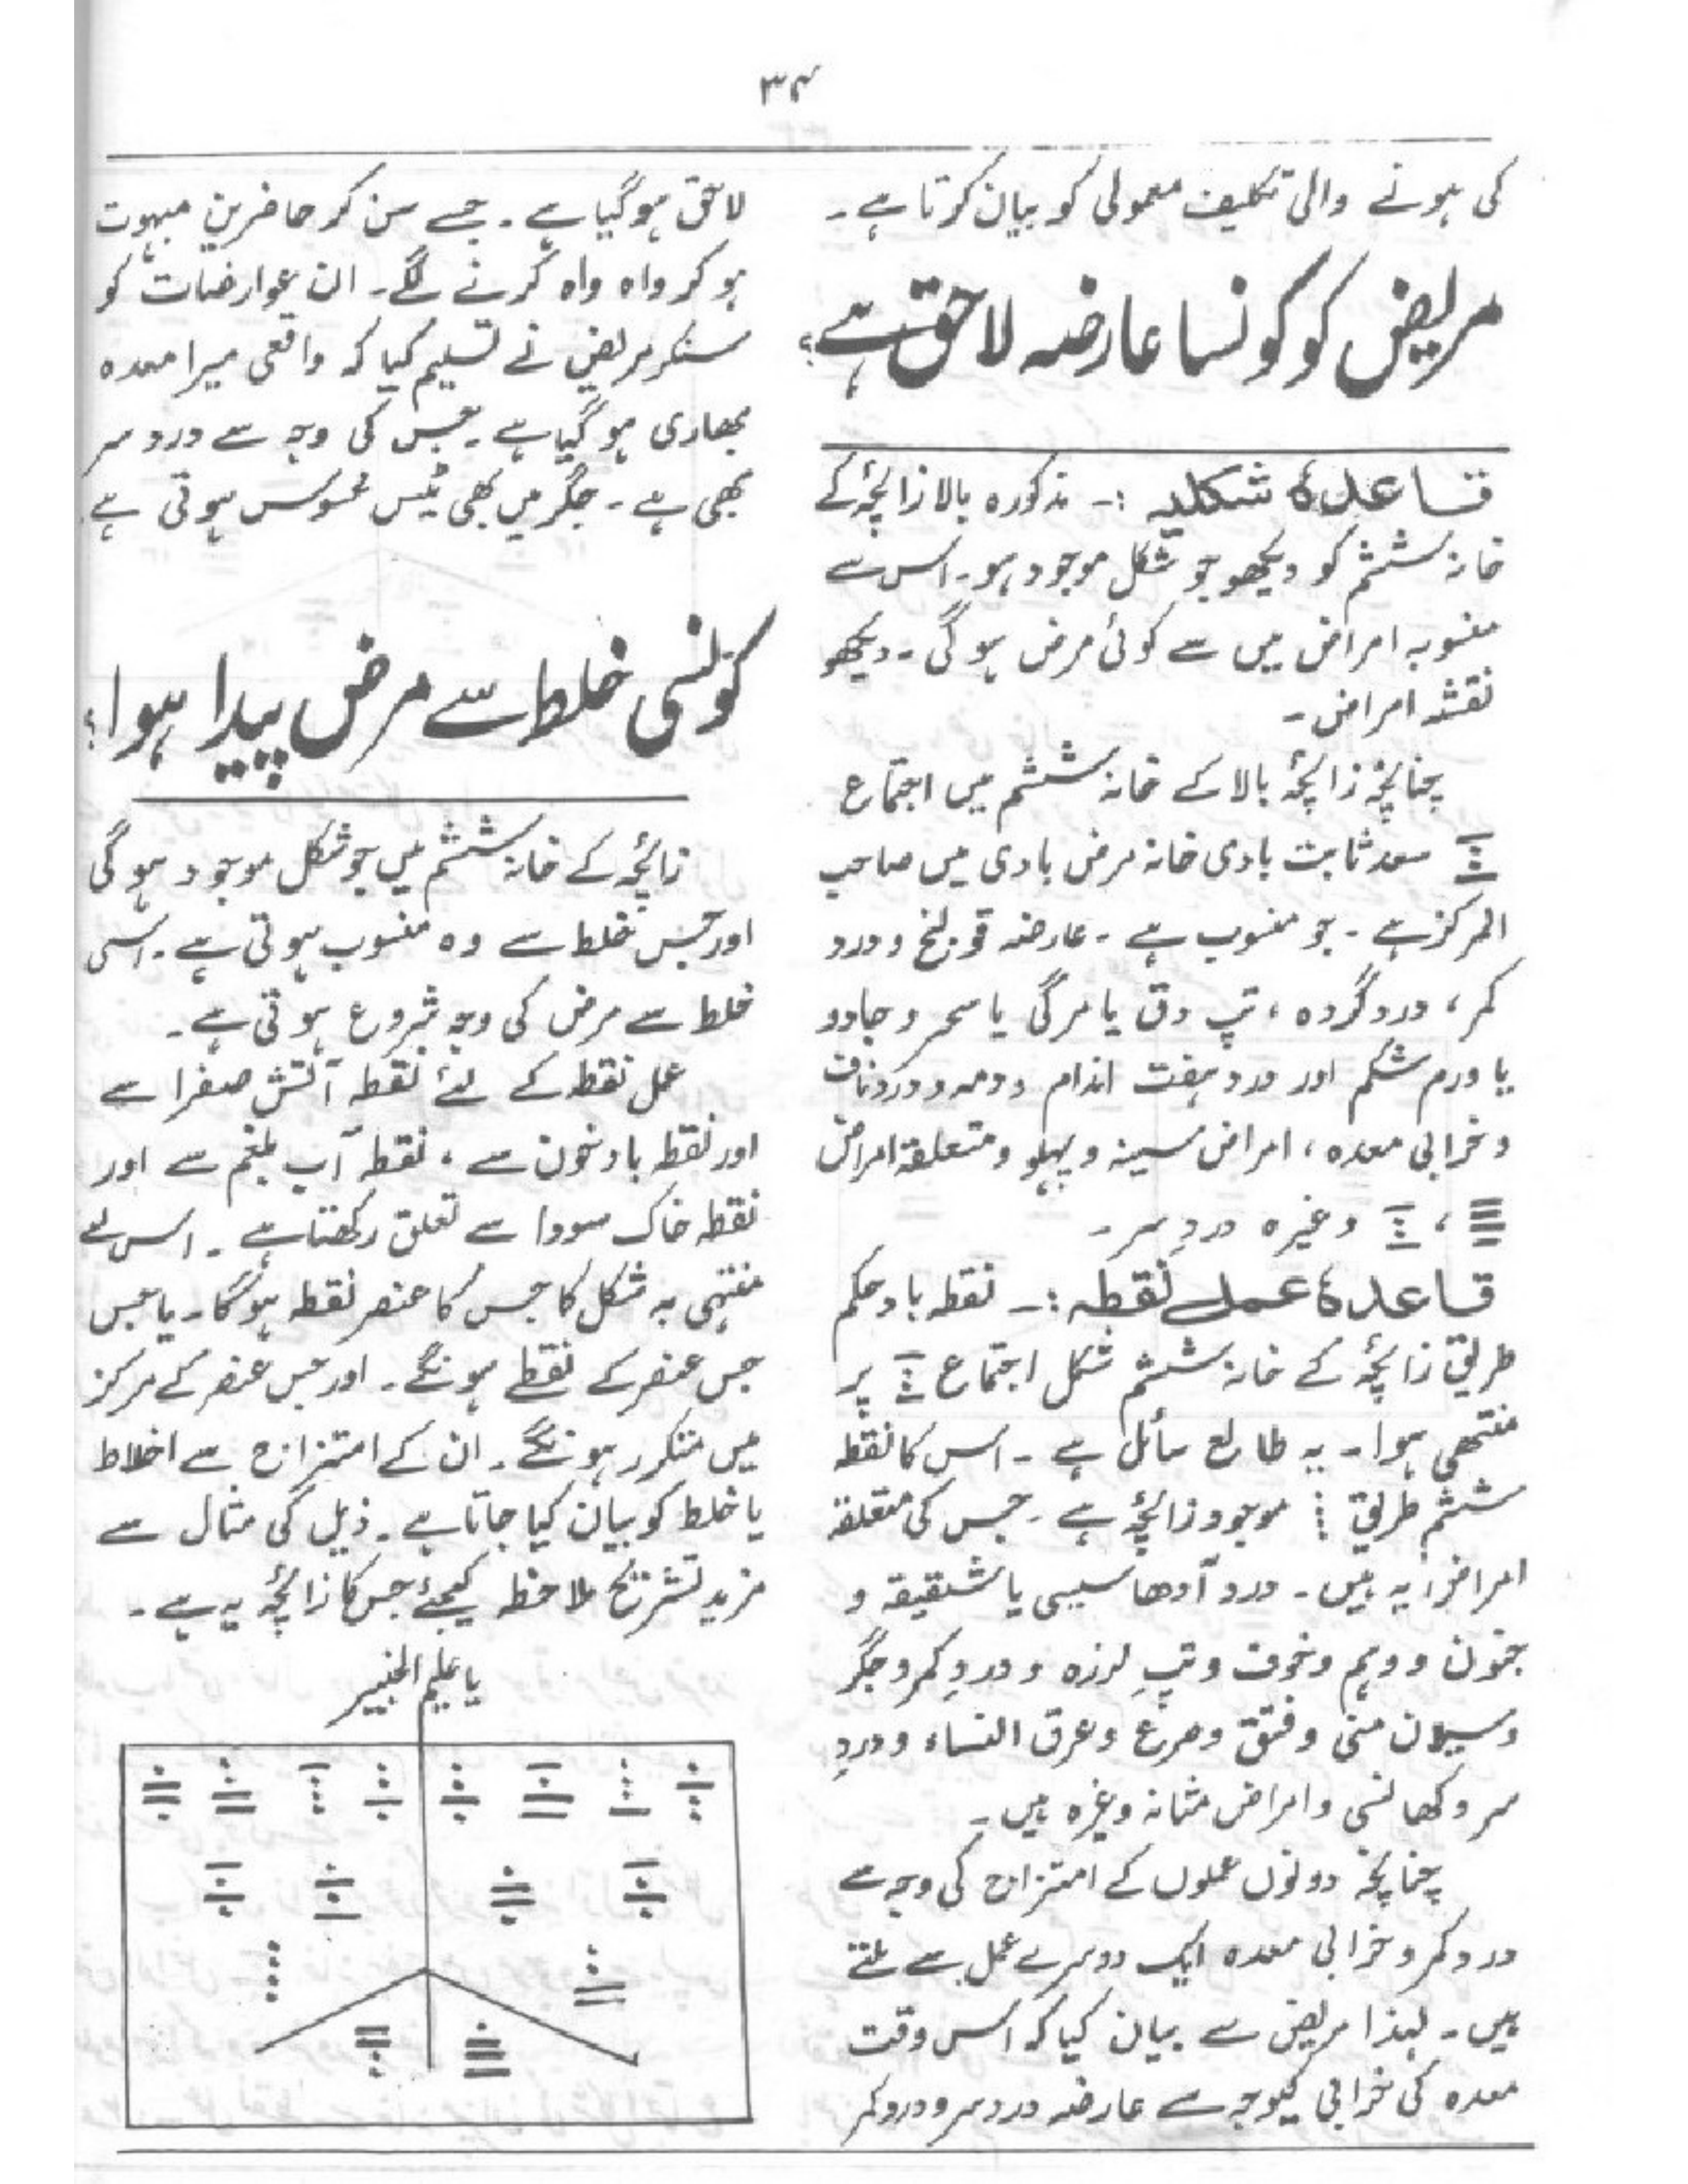 ۳۴
کی ہونے والی تکلیف معمولی کو بیان کرتا ہے۔
مریض کو کونسا عارضہ لاحق ہے؟
قاعدۂ شکلیہ :۔ مذکورہ بالا زائچۂ کے
خانہ ششم کو دیکھو جو شکل موجود ہو۔ اس سے
منسوبہ امراض میں سے کوئی مرض ہو گی۔ دیکھو
نقشہ امراض۔
چنانچہ زائچۂ بالا کے خانہ ششم میں اجتماع
سعد ثابت بادی خانہ مرض بادی میں صاحب
المرکز ہے۔ جو منسوب ہے۔ عارضہ قولنج و درد
کمر، درد گردہ، تپ دق یا مرگی یا سحر و جادو
یا ورم شکم اور درد ہفت اندام و دمہ و درد ناف
و خرابی معدہ، امراض سینہ و پہلو و متعلقہ امراض
، وغیرہ دردِ سر۔
قاعدۂ عمل نقطہ :۔ نقطہ باد حکم
طریق زائچۂ کے خانہ ششم شکل اجتماع پر
منتھی ہوا۔ یہ طالع سائل ہے۔ اس کا نقطہ
ششم طریق موجود زائچۂ ہے۔ جس کی متعلقہ
امراض یہ ہیں۔ درد آدھا سیسی یا شقیقہ و
جنون و وہم و خوف و تپِ لرزہ و دردِ کمر و جگر
و سیلان منی و فتق و صرع و عرق النساء و دردِ
سر و کھانسی و امراض مثانہ وغیرہ ہیں۔
چنانچہ دونوں عملوں کے امتزاج کی وجہ سے
درد کمر و خرابی معدہ ایک دوسرے عمل سے ملتے
ہیں۔ لہذا مریض سے بیان کیا کہ اس وقت
معدہ کی خرابی کیوجہ سے عارضہ درد سر و درد کمر
لاحق ہو گیا ہے۔ جسے سن کر حاضرین مبہوت
ہو کر واہ واہ کرنے لگے۔ ان عوارضات کو
سنکر مریض نے تسلیم کیا کہ واقعی میرا معدہ
بھاری ہو گیا ہے۔ جس کی وجہ سے درد سر
بھی ہے۔ جگر میں بھی ٹیس محسوس ہوتی ہے
کونسی خلط سے مرض پیدا ہوا؟
زائچۂ کے خانہ ششم میں جو شکل موجود ہو گی
اور جس خلط سے وہ منسوب ہوتی ہے۔ اسی
خلط سے مرض کی وجہ شروع ہوتی ہے۔
عمل نقطہ کے لئے نقطہ آتش صفرا سے
اور نقطہ باد خون سے، نقطہ آب بلغم سے اور
نقطہ خاک سودا سے تعلق رکھتا ہے۔ اس لئے
منتہی بہ شکل کا جس کا عنصر نقطہ ہوگا۔ یا جس
جس عنصر کے نقطے ہونگے۔ اور جس عنصر کے مرکز
میں متکرر ہونگے۔ ان کے امتزاج سے اخلاط
یا خلط کو بیان کیا جاتا ہے۔ ذیل کی مثال سے
مزید تشریح ملاحظہ کیجئے جس کا زائچۂ یہ ہے۔
یا علیم الخبیر